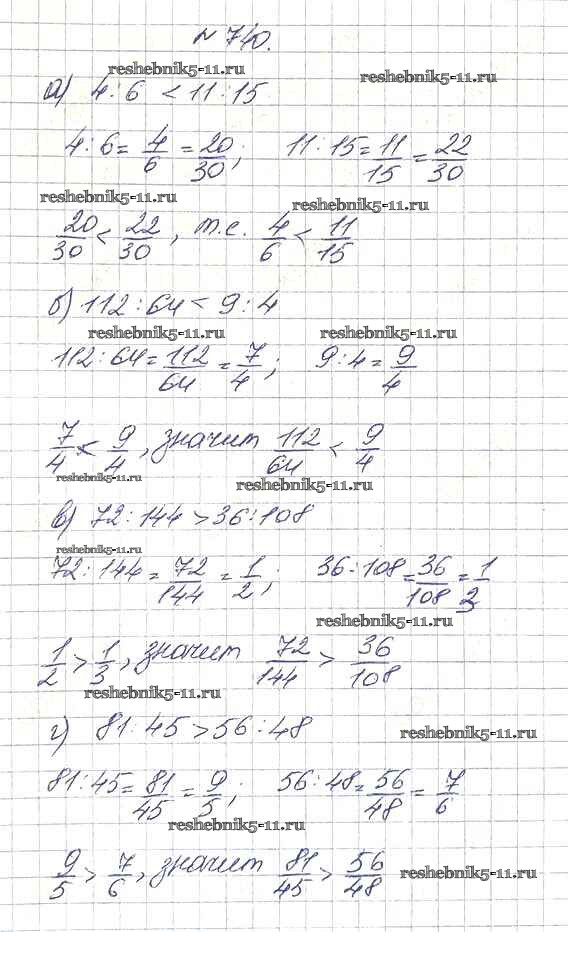 № 740.
reshebnik5-11.ru
reshebnik5-11.ru
а) 4 : 6 < 11 : 15
4 : 6 = 4/6 = 20/30; 11 : 15 = 11/15 = 22/30
reshebnik5-11.ru
reshebnik5-11.ru
20/30 < 22/30, т.е. 4/6 < 11/15
б) 112 : 64 < 9 : 4
reshebnik5-11.ru
reshebnik5-11.ru
112 : 64 = 112/64 = 7/4; 9 : 4 = 9/4
7/4 < 9/4, значит 112/64 < 9/4
reshebnik5-11.ru
reshebnik5-11.ru
в) 72 : 144 > 36 : 108
reshebnik5-11.ru
72 : 144 = 72/144 = 1/2; 36 : 108 = 36/108 = 1/3
reshebnik5-11.ru
1/2 > 1/3, значит 72/144 > 36/108
reshebnik5-11.ru
г) 81 : 45 > 56 : 48
reshebnik5-11.ru
81 : 45 = 81/45 = 9/5; 56 : 48 = 56/48 = 7/6
reshebnik5-11.ru
9/5 > 7/6, значит 81/45 > 56/48
reshebnik5-11.ru